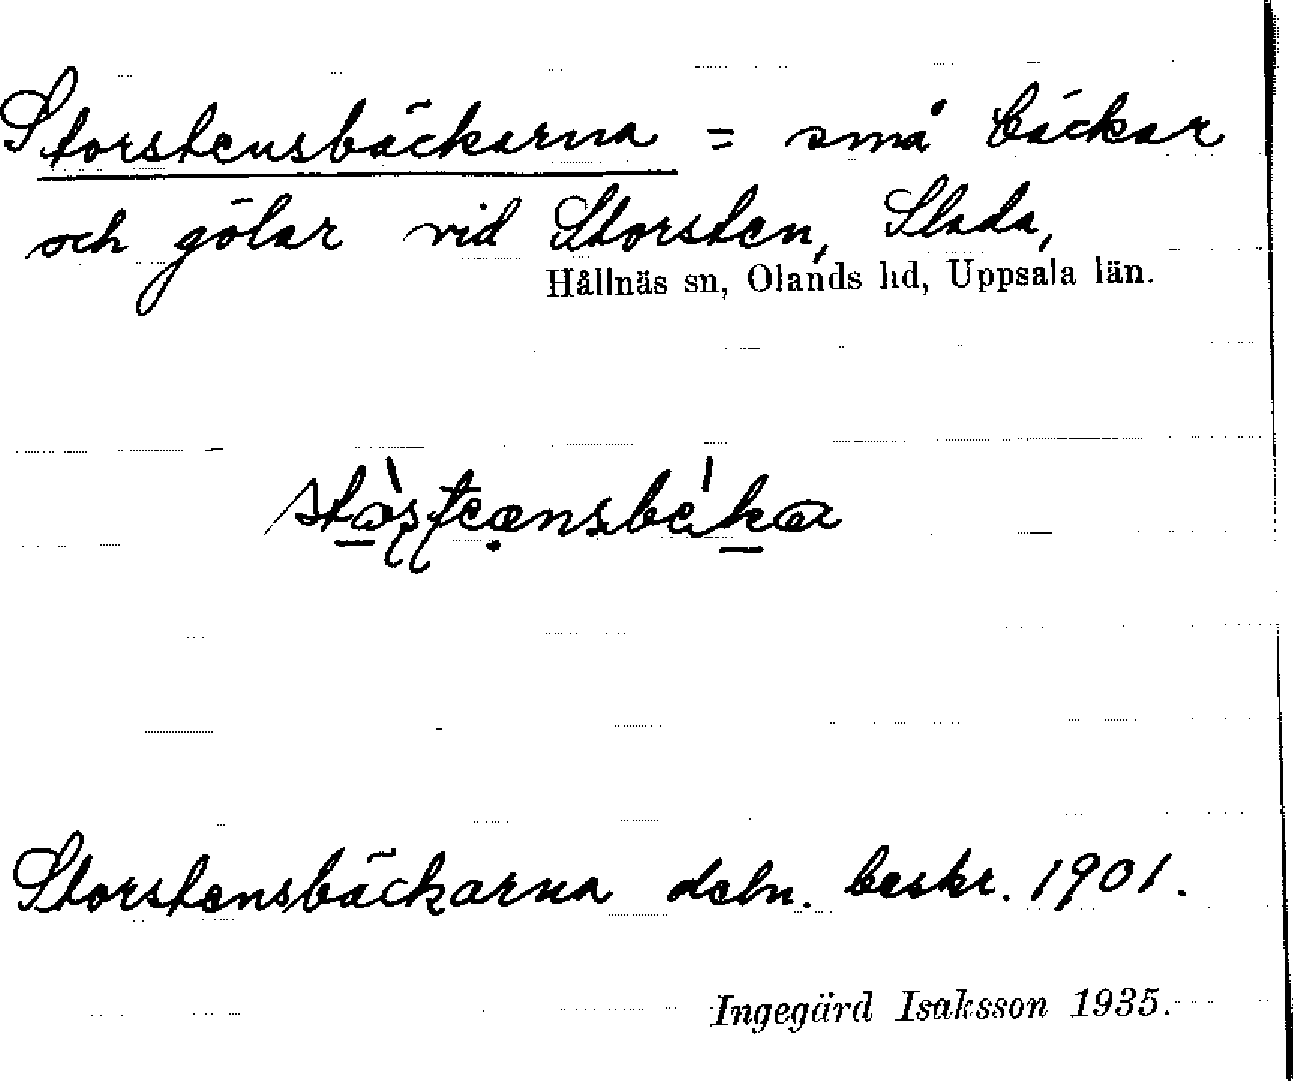 Storstensbäckarna = små bäckar
och gölar vid Storsten, Slada,
Hållnäs sn, Olands hd, Uppsala län.
Storstensbäckarna deln. beskr. 1901.
Ingegärd Isaksson 1935.